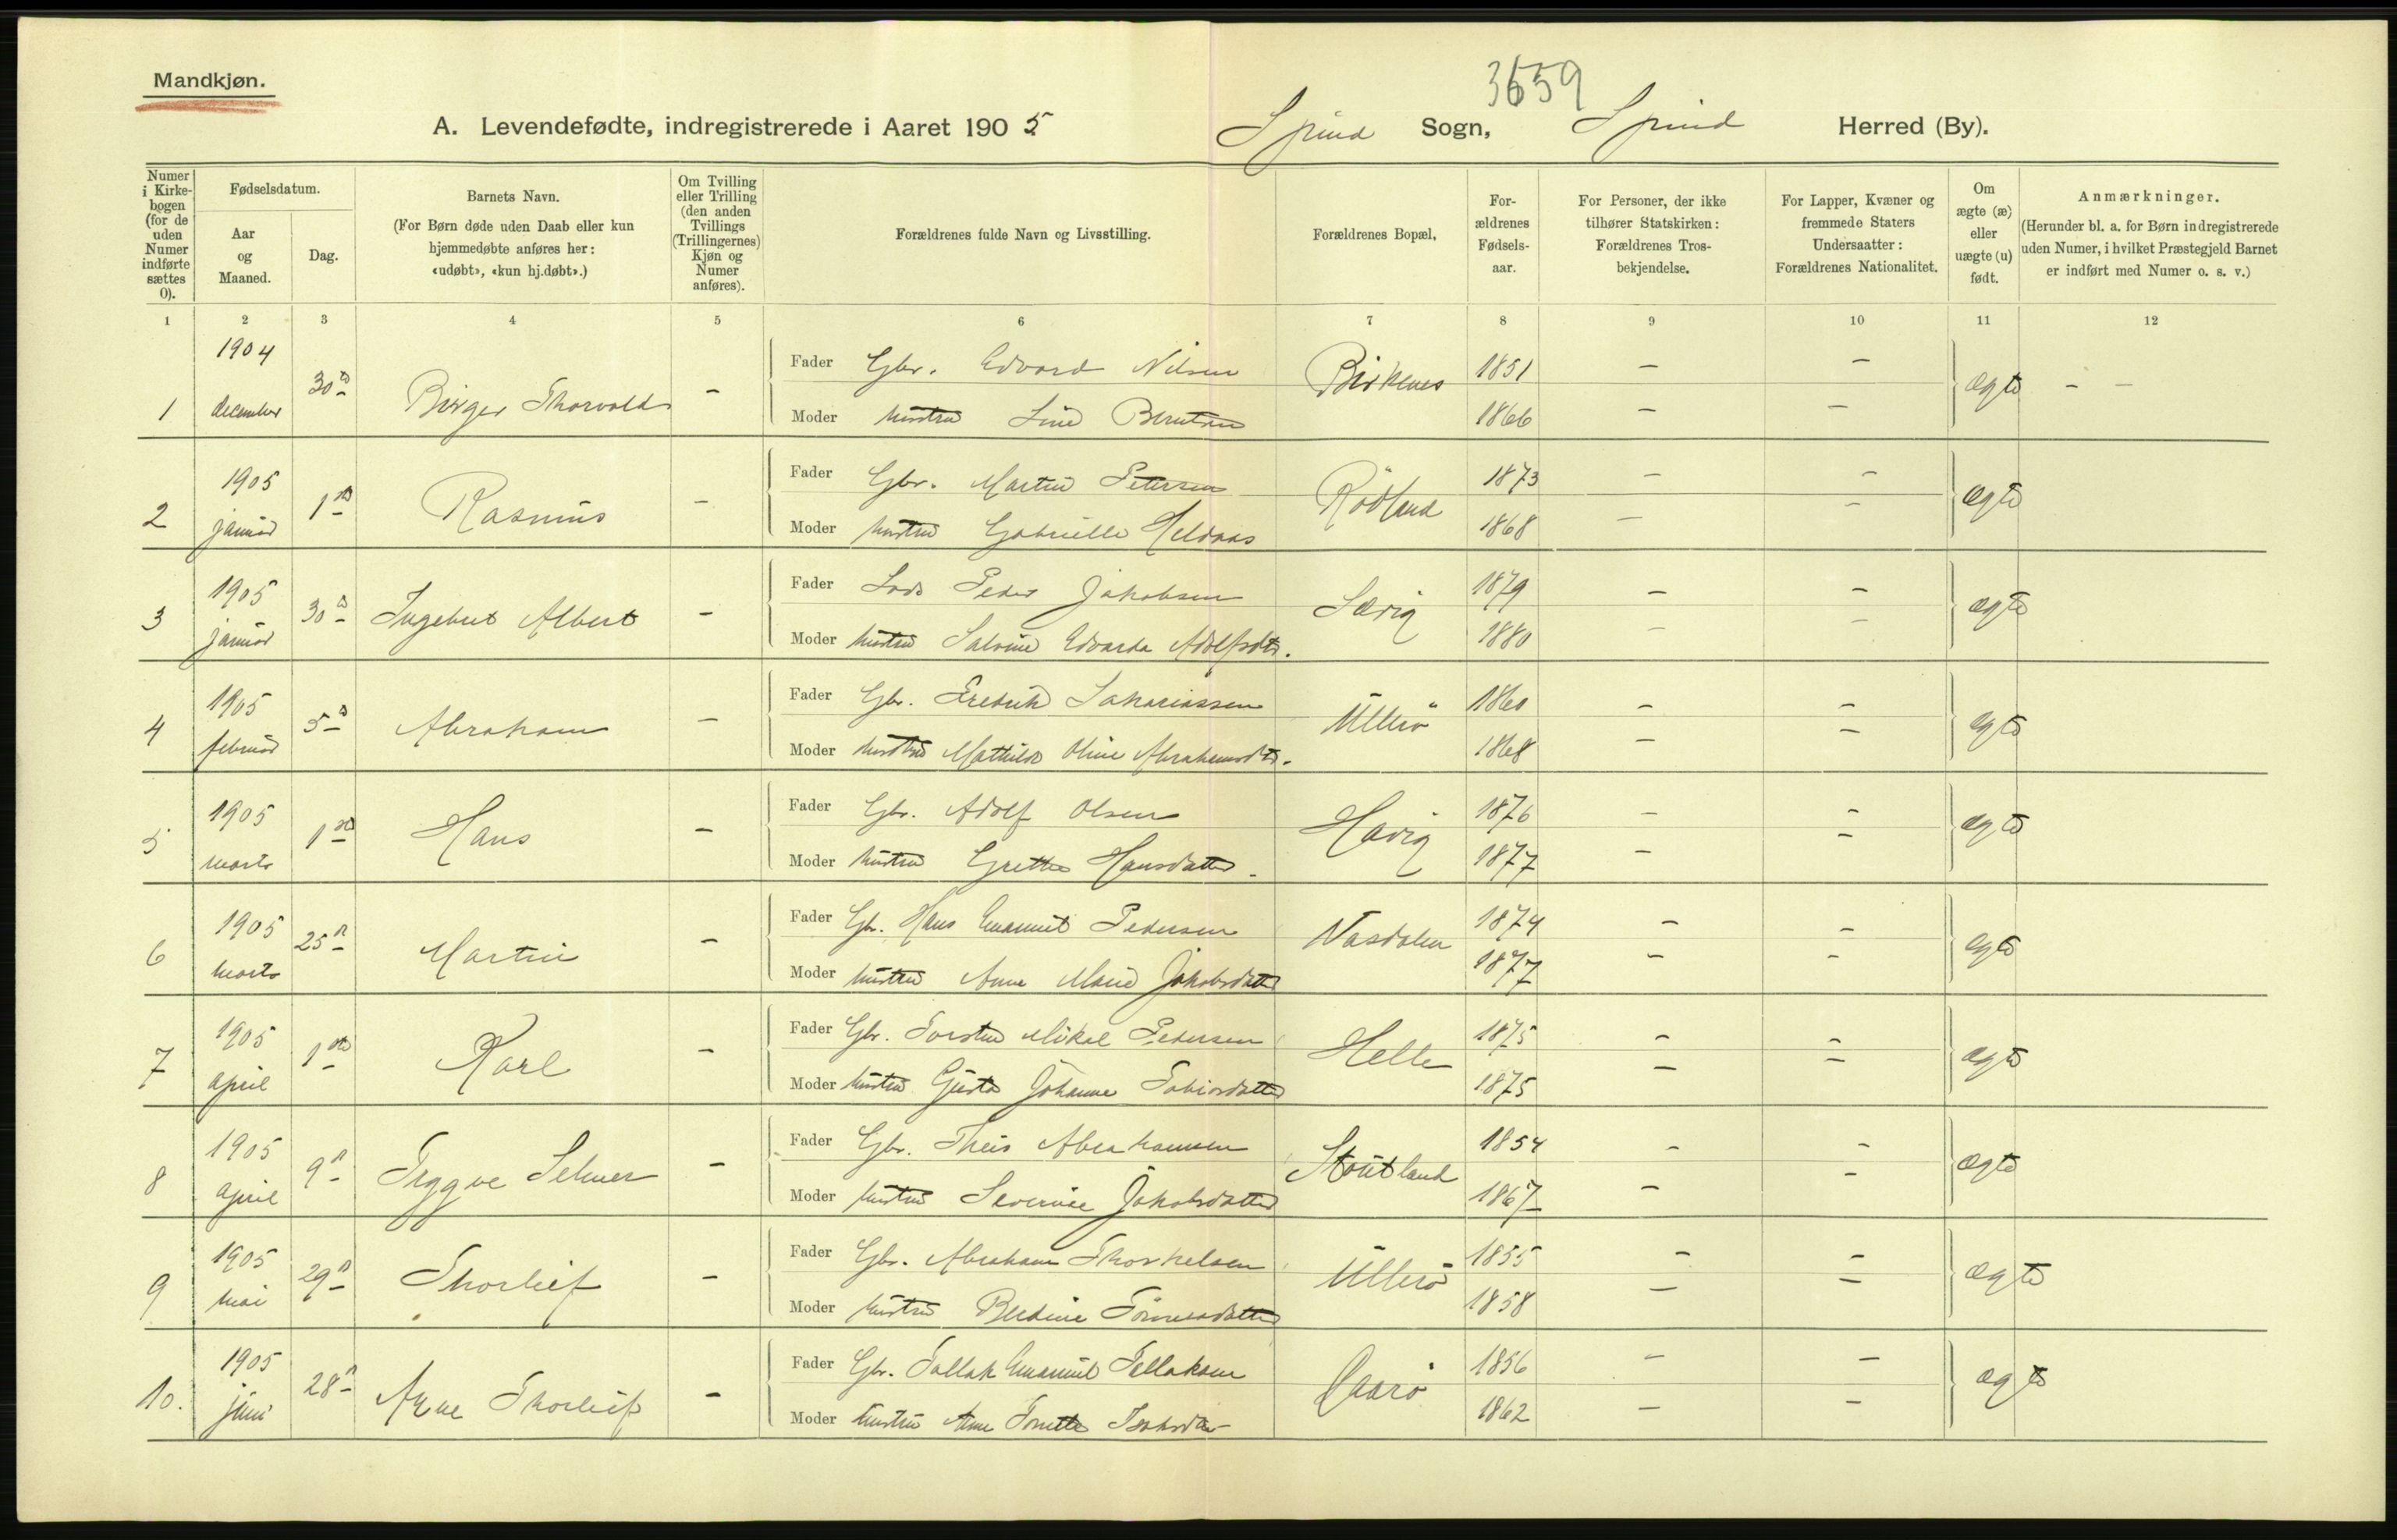 Mandkjøn.
3659
A. Levendefødte, indregistrerede i Aaret 1905 Spind Sogn, Spind Herred (By).
Numer i Kirkebogen (for de uden Numer indførte sættes 0).
Fødselsdatum.
Aar og Maaned.
Dag.
Barnets Navn.
(For Børn døde uden Daab eller kun hjemmedøbte anføres her: «udøbt», «kun hj.døbt».)
Om Tvilling eller Trilling (den anden Tvillings (Trillingernes) Kjøn og Numer anføres).
Forældrenes fulde Navn og Livsstilling.
Forældrenes Bopæl,
Forældrenes Fødselsaar.
For Personer, der ikke tilhører Statskirken: Forældrenes Trosbekjendelse.
For Lapper, Kvæner og fremmede Staters Undersaatter: Forældrenes Nationalitet.
Om ægte (æ) eller uægte (u) født.
Anmærkninger.
(Herunder bl. a. for Børn indregistrerede uden Numer, i hvilket Præstegjeld Barnet er indført med Numer o. s. v.)
1 2 3 4 5 6 7 8 9 10 11 12
1 1904 december 30 Birger Thorvald - Fader Gbr. Edvard Nilsen Birkenes 1851 - - ægte - -
Moder hustru Line Berntsen 1866 - -
2 1905 januar 1 Rasmus - Fader Gbr. Martin Petersen Rödland 1873 - - ægte
Moder hustru Gabrielle Heldaas 1868 - -
3 1905 januar 30 Ingebret Albert - Fader Lods Peder Jakobsen Særig 1879 - - ægte
Moder hustru Salvine Edvarda Adolfsdtr. 1880 - -
4 1905 februar 5 Abraham - Fader Gbr. Fredrik Sakariassen Ullerö 1860 - - ægte
Moder hustru Mathilde Oline Abrahamsdtr. 1868 - -
5 1905 marts 1 Hans - Fader Gbr. Adolf Olsen Havig 1876 - - ægte
Moder hustru Grethe Hansdatter. 1877 - -
6 1905 marts 25 Martin - Fader Gbr. Hans Emanuel Pedersen Vasdalen 1874 - - ægte
Moder hustru Anne Marie Jakobsdatter 1877 - -
7 1905 april 1 Karl - Fader Gbr. Torsten Mikal Pedersen Helle 1875 - - ægte
Moder hustru Gusta Johanne Tobiasdatter 1875 - -
8 1905 april 9 Tryggve Selmer - Fader Gbr. Theis Abrahamsen Stoutland 1854 - - ægte
Moder hustru Severine Jakobsdatter 1867 - -
9 1905 mai 29 Thorleif - Fader Gbr. Abraham Thorkelsen Ullerö 1855 - - ægte
Moder hustru Berdine Tönnesdatter 1858 - -
10. 1905 juni 28 Arne Thorleif - Fader Gbr. Tallak Emanuel Tallaksen 1856 - - ægte
Moder hustru Anne Tonette Isaksdtr 1862 - -